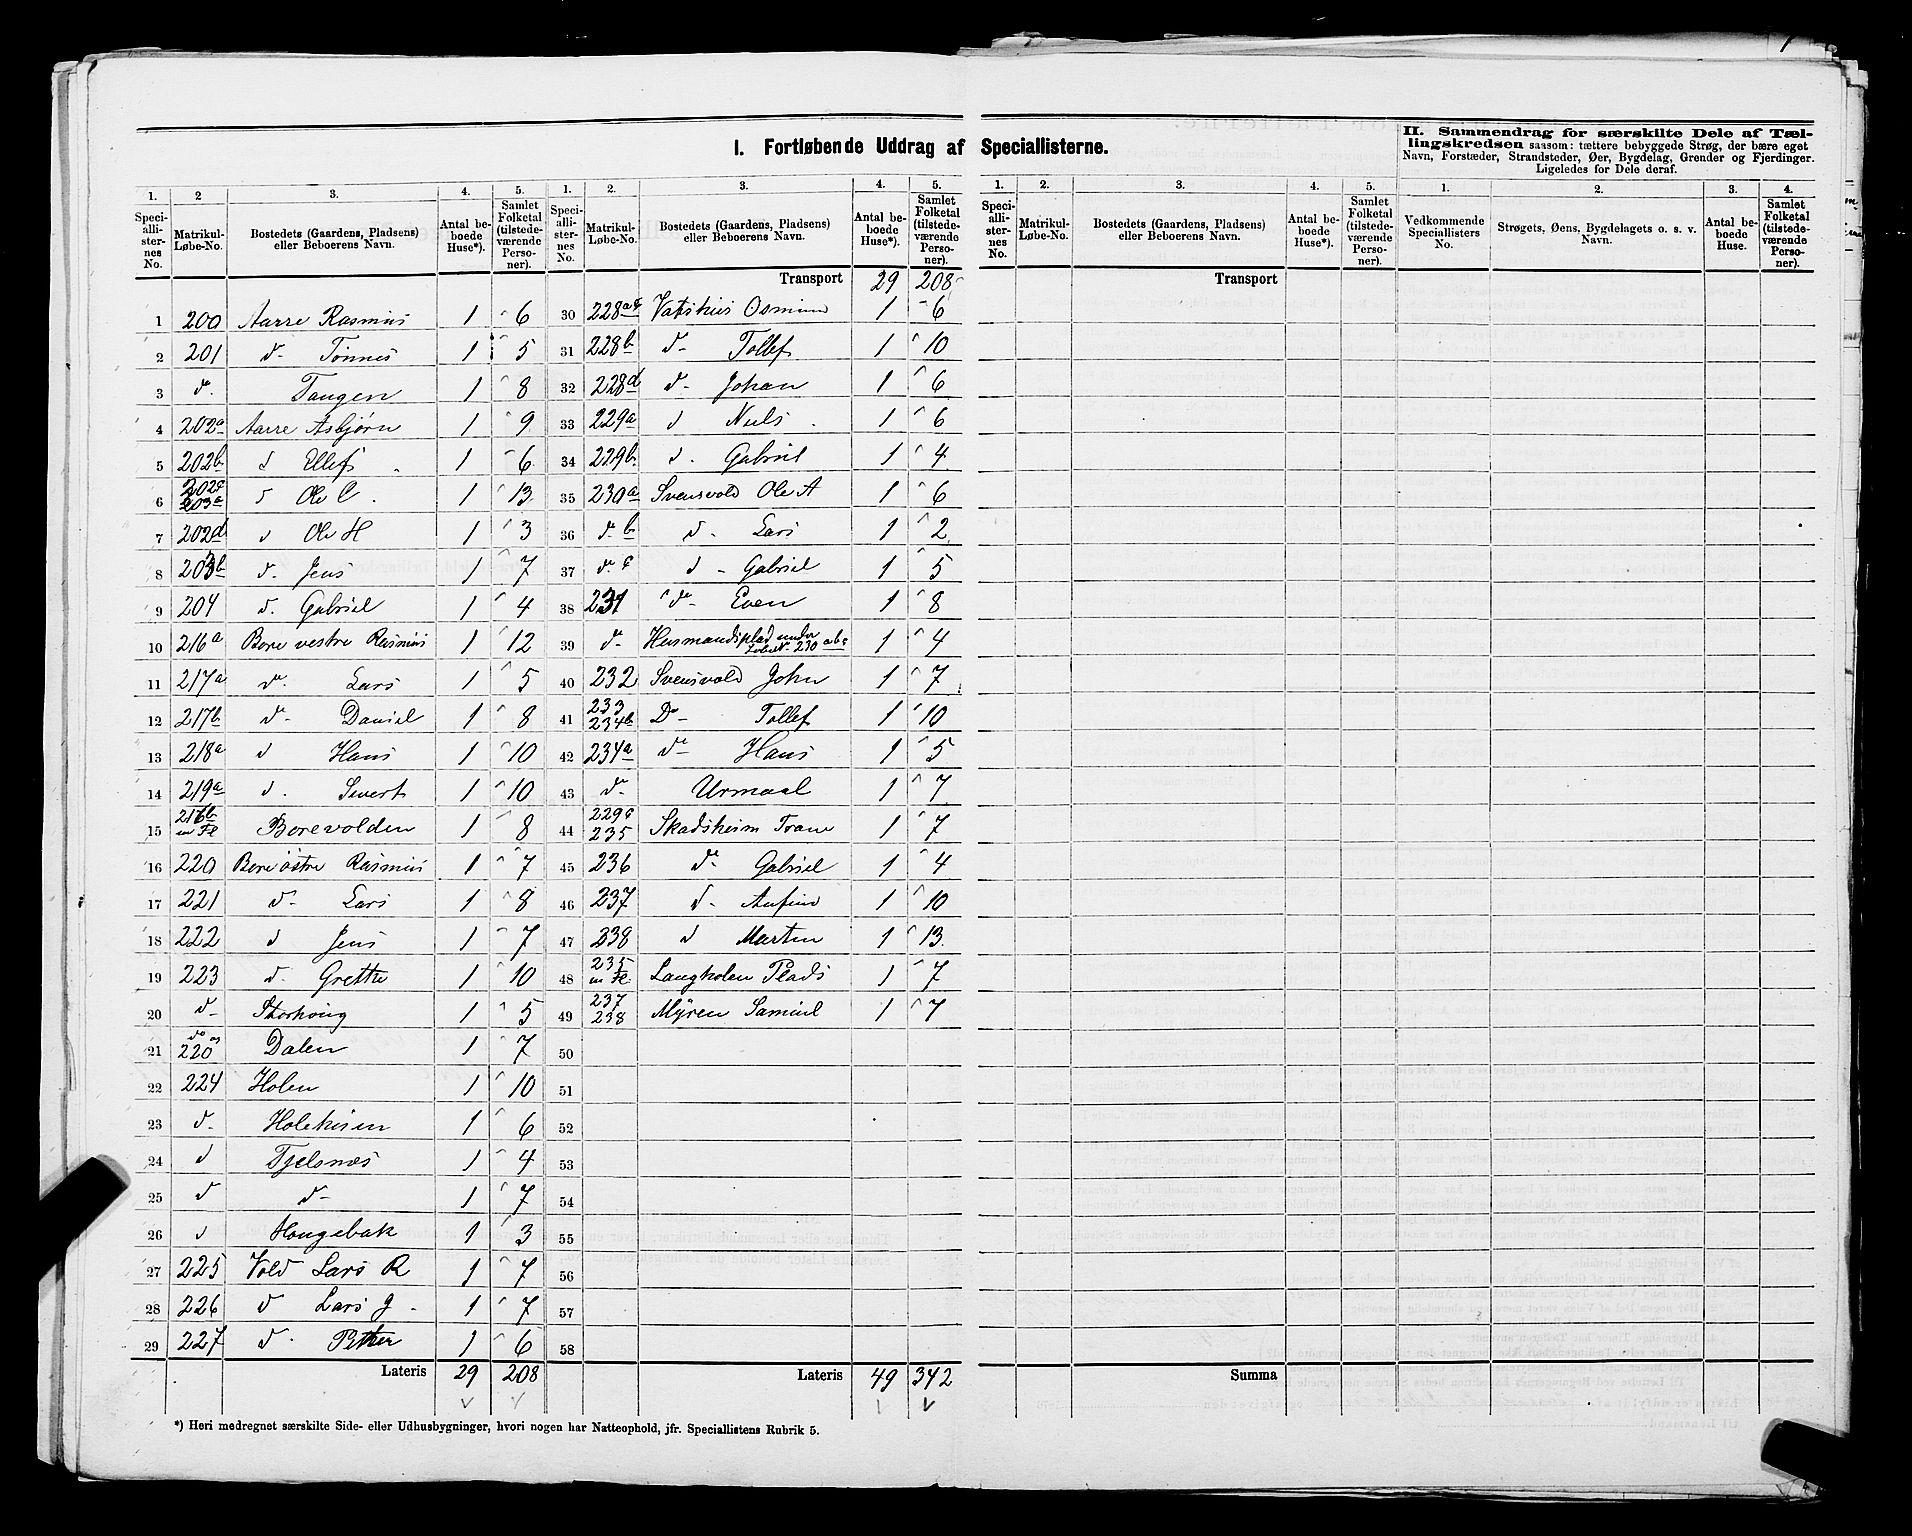 I. Fortløbende Uddrag af Speciallisterne.
II. Sammendrag for særskilte Dele af Tæl-
lingskredsen saasom: tættere bebyggede Strøg, der bære eget
Navn, Forstæder, Strandsteder, Øer, Bygdelag, Grender og Fjerdinger.
Ligeledes for Dele deraf.
1. 2 3. 4. 5. 1. 2. 3. 4. 5. 1. 2. 3. 4. 5. 1. 2. 3. 4.
Speci-alli-ster-nes No. Matrikul-Løbe-No. Bostedets (Gaardens, Pladsens) eller Beboerens Navn. Antal be-boede Huse*). Samlet Folketal (tilstede-værende Perso-ner).
Speci-alli-ster-nes No. Matrikul-Løbe-No. Bostedets (Gaardens, Pladsens) eller Beboerens Navn. Antal be-boede Huse*). Samlet Folketal (tilstede-værende Perso-ner).
Speci-alli-ster-nes No. Matrikul-Løbe-No. Bostedets (Gaardens, Pladsens) eller Beboerens Navn. Antal be-boede Huse*). Samlet Folketal (tilstede-værende Perso-ner).
Vedkommende Speciallisters No. Strøgets, Øens, Bygdelagets o. s. v. Navn. Antal be-boede Huse. Samlet Folketal (tilstede-værende Perso-ner).
1 200 Aarre Rasmus 1 6
2 201 do Tönnes 1 5
3 do Tangen 1 8
4 202a Aarre Asbjørn 1 9
5 202b d Ellef 1 6
6 202c 203a d Ole C. 1 13
7 202d d Ole H 1 3
8 203b d. Jens 1 7
9 204 d. Gabriel 1 4
10 216a Bore vestre Rasmus 1 12
11 217a do Lars 1 5
12 217b do Daniel 1 8
13 218a d Hans 1 10
14 219a d. Sivert 1 10
15 216b m Fl Borevolden 1 8
16 220 Bore östre Rasmus 1 7
17 221 d. Lars 1 8
18 222 d Jens 1 7
19 223 d. Grethe 1 10
20 d. Storhoug 1 5
21 do og 220 Dalen 1 7
22 224 Holen 1 10
23 d. 1 6
24 d Tjelsnæs 1 4
25 d d- 1 7
26 d Hougebak 1 3
27 225 Vold Lars R 1 7
28 226 d Lars G. 1 7
29 227 d. Petter 1 6
Lateris 29 208
Transport 29 208
30 228a Osmund 1 6
31 228b d- Tollef 1 10
32 228d d- Johan 1 6
33 229a d Niels 1 6
34 229b d. Gabriel 1 4
35 230a Svensvold Ole A 1 6
36 do b d. Lars 1 2
37 do c d - Gabriel 1 5
38 231 do Even 1 8
39 do Husmandsplad under LøbeNo 230 abc 1 4
40 232 Svensvold John 1 7
41 233 234b Do Tollef 1 10
42 234a do Hans 1 5
43 do Urmaal 1 7
44 229c 235 Skadsheim Trane 1 7
45 236 do Gabriel 1 4
46 237 d- Anfind 1 10
47 238 d Martin 1 13
48 235 m Fl. Langholen Plads 1 7
49 237 238 Myren Samuel 1 7
50
51
52
53
54
55
56
57
58
Lateris 49 342
Transport
Summa
*) Heri medregnet særskilte Side- eller Udhusbygninger, hvori nogen har Natteophold, jfr. Speciallistens Rubrik 5.